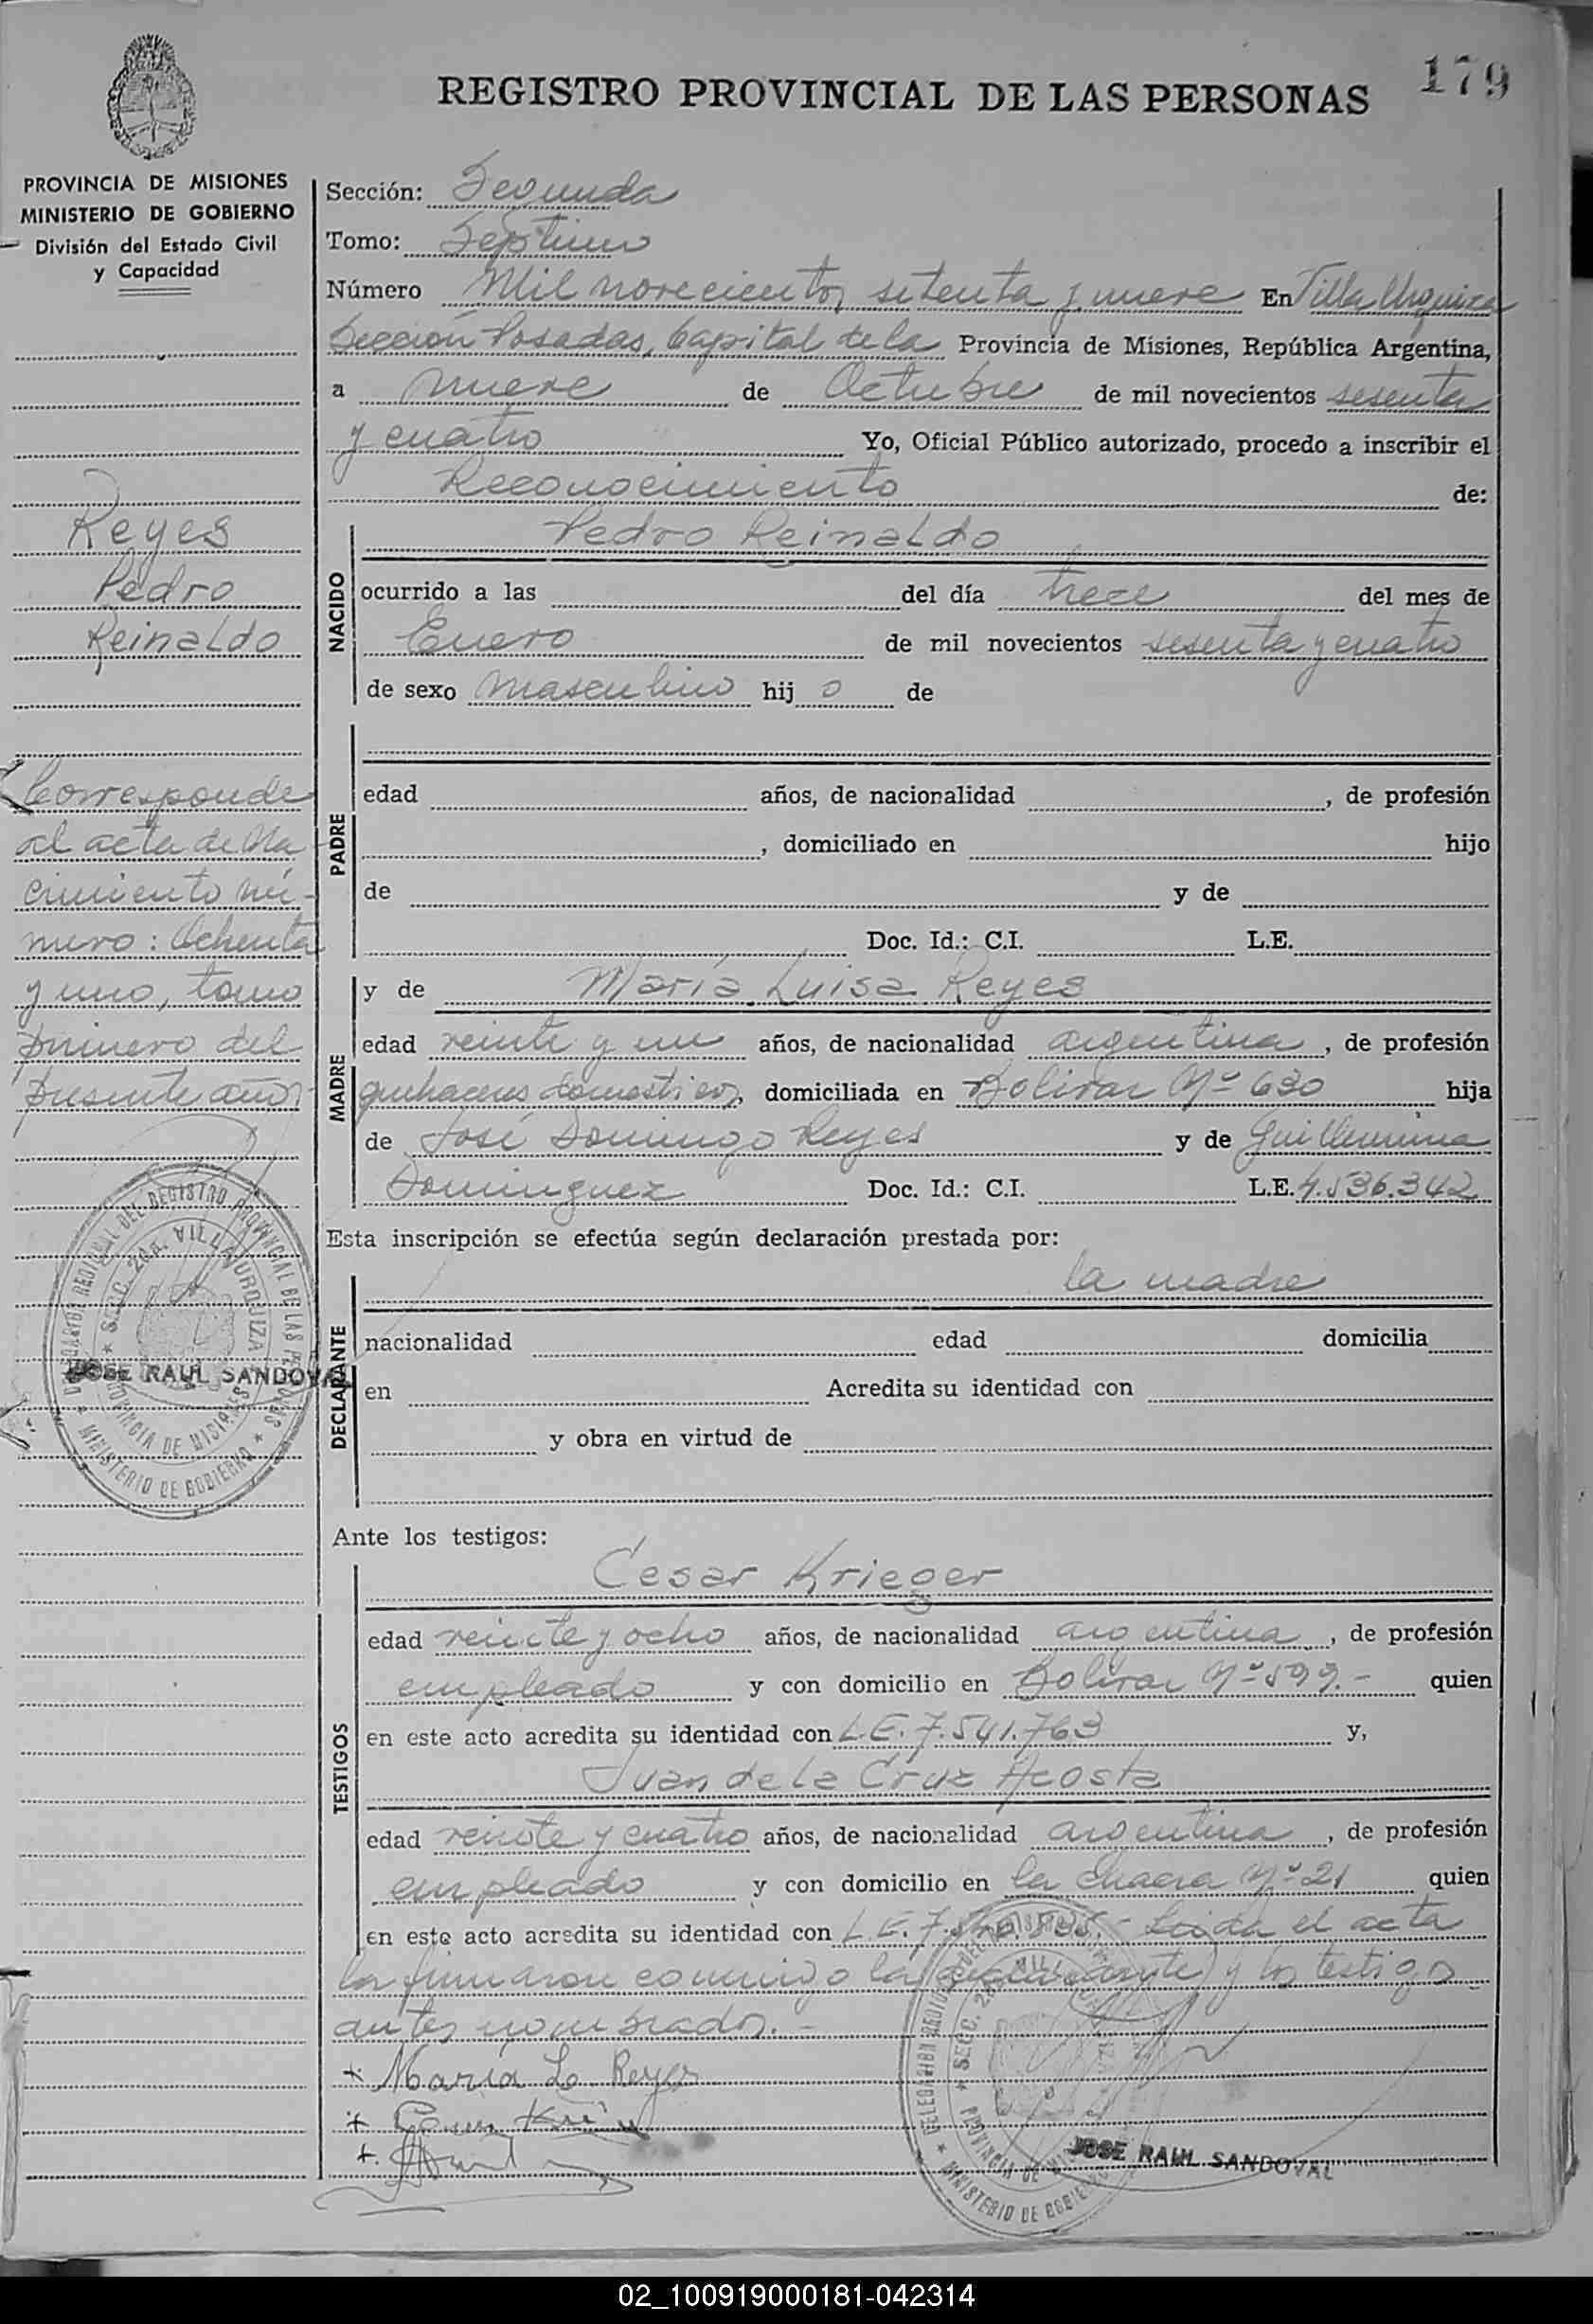 179
REGISTRO PROVINCIAL DE LAS PERSONAS
PROVINCIA DE MISIONES
MINISTERIO DE GOBIERNO
División del Estado Civil
y Capacidad
Reyes
Pedro
Reinaldo
Corresponde
al acta de Na
cimiento nú-
mero: Ochenta
y uno, tomo
primero del
presente año.-
JOSE RAUL SANDOVAL
Sección: Segunda
Tomo: Septimo
Número Mil novecientos setenta y nueve En Villa Urquiza
Sección Posadas, Capital de la Provincia de Misiones, República Argentina,
a nueve de Octubre de mil novecientos sesenta
y cuatro Yo, Oficial Público autorizado, procedo a inscribir el
Reconocimiento de:
NACIDO
Pedro Reinaldo
ocurrido a las del día trece del mes de
Enero de mil novecientos sesenta y cuatro
de sexo masculino hij o de
PADRE
edad años, de nacionalidad , de profesión
, domiciliado en hijo
de y de
Doc. Id.: C.I. L.E.
MADRE
y de María Luisa Reyes
edad veinte y un años, de nacionalidad argentina, de profesión
quehaceres domesticos, domiciliada en Bolivar Nº 630 hija
de José Domingo Reyes y de Guillermina
Dominguez Doc. Id.: C.I. L.E. 4.536.342
Esta inscripción se efectúa según declaración prestada por:
DECLARANTE
la madre
nacionalidad edad domicilia
en Acredita su identidad con
y obra en virtud de
Ante los testigos:
TESTIGOS
Cesar Krieger
edad veinte y ocho años, de nacionalidad argentina, de profesión
empleado y con domicilio en Bolivar Nº 599.- quien
en este acto acredita su identidad con L.E. 7.541.763 y,
Juan de la Cruz Acosta
edad veinte y cuatro años, de nacionalidad argentina, de profesión
empleado y con domicilio en la Chacra Nº 21 quien
en este acto acredita su identidad con L.E. Leida el acta
la firmaron conmigo la declarante y los testigos
antes nombrados.-
+ María L. Reyes
JOSE RAUL SANDOVAL
02_100919000181-042314